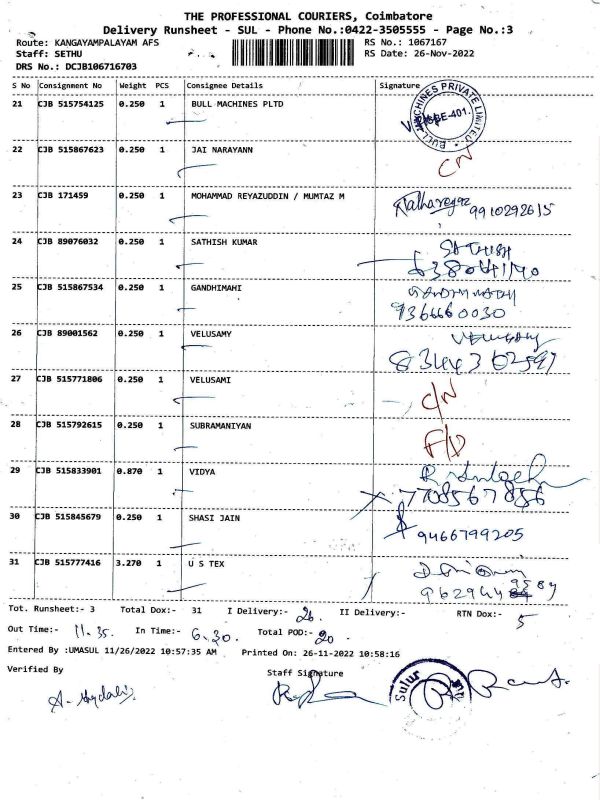 THE PROFESSIONAL COURIERS, Coimbatore
Delivery Runsheet - SUL - Phone No.:0422-3505555 - Page No.:3
Route: KANGAYAMPALAYAM AFS RS No.: 1067167
Staff: SETHU RS Date: 26-Nov-2022
DRS No.: DCJB106716703
S No Consignment No Weight PCS Consignee Details Signature
21 CJB 515754125 0.250 1 BULL MACHINES PLTD
22 CJB 515867623 0.250 1 JAI NARAYANN C/N
23 CJB 171459 0.250 1 MOHAMMAD REYAZUDDIN / MUMTAZ M 9910292615
24 CJB 89076032 0.250 1 SATHISH KUMAR SATHISH
25 CJB 515867534 0.250 1 GANDHIMAHI
9366660030
26 CJB 89001562 0.250 1 VELUSAMY
27 CJB 515771806 0.250 1 VELUSAMI C/N
28 CJB 515792615 0.250 1 SUBRAMANIYAN F/D
29 CJB 515833901 0.870 1 VIDYA
7708567856
30 CJB 515845679 0.250 1 SHASI JAIN 9466799205
31 CJB 515777416 3.270 1 U S TEX
Tot. Runsheet:- 3 Total Dox:- 31 I Delivery:- 26 II Delivery:- RTN Dox:- 5
Out Time:- 11.35. In Time:- 6.30. Total POD:- 20
Entered By :UMASUL 11/26/2022 10:57:35 AM Printed On: 26-11-2022 10:58:16
Verified By Staff Signature
Sulur